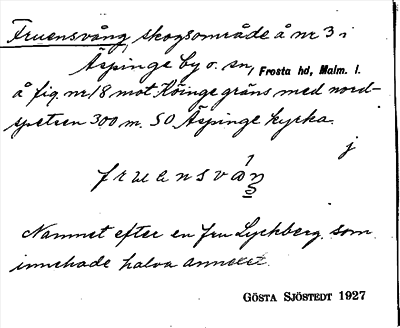 Fruensvång, skogsområde å nr 3 i
Äspinge by o. sn, Frosta hd, Malm. l.
å fig. nr 18 mot Köinge gräns med nord-
spetsen 300 m. SO Äspinge kyrka.
j
fruensvåŋ
Namnet efter en fru Lyckberg som
innehade halva annexet.
GÖSTA SJÖSTEDT 1927